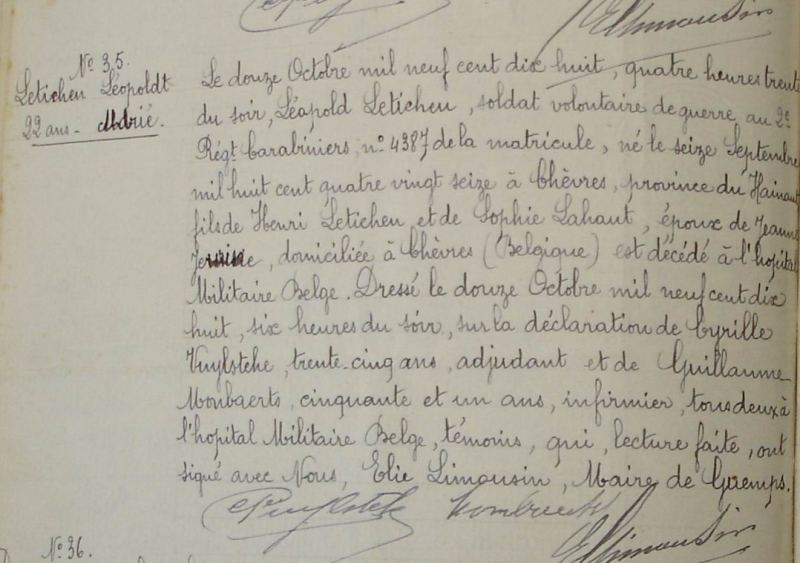 Nº 35.
Letichen Léopoldt
22 ans - Marié.
Le douze Octobre mil neuf cent dix huit, quatre heures trente
du soir, Léopold Leticheu, soldat volontaire de guerre au 2e
Régt Carabiniers, nº 4387 de la matricule, né le seize Septembre
mil huit cent quatre vingt seize à Chèvres, province du Hainaut
fils de Henri Leticheu, et de Sophie Lahaut, époux de Jeanne
, domiciliée à Chèvres (Belgique) est décédé à l'hopital
Militaire Belge. Dressé le douze Octobre mil neuf cent dix
huit, six heures du soir, sur la déclaration de Cyrille
Vuylsteke, trente-cinq ans, adjudant et de Guillaume
Mombaerts, cinquante et un ans, infirmier, tous deux à
l'hopital Militaire Belge, témoins, qui, lecture faite, ont
signé avec Nous, Elie Limousin, Maire de Guemps.
CVuylsteke
ELimousin
Nº 36.